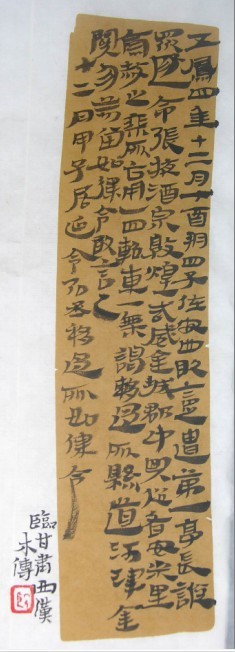 五鳳四年十二月丁酉朔子佐安世敢言之遣第一亭長護
眾逐命張掖酒泉敦煌武威金城郡中與從者安樂里
赦之乘所占用一匹軺車一乘謁移過所縣道河津金
關勿苛留如律令敢言之
十二月甲子居延令移過所如律令
臨甘肅西漢
木傳